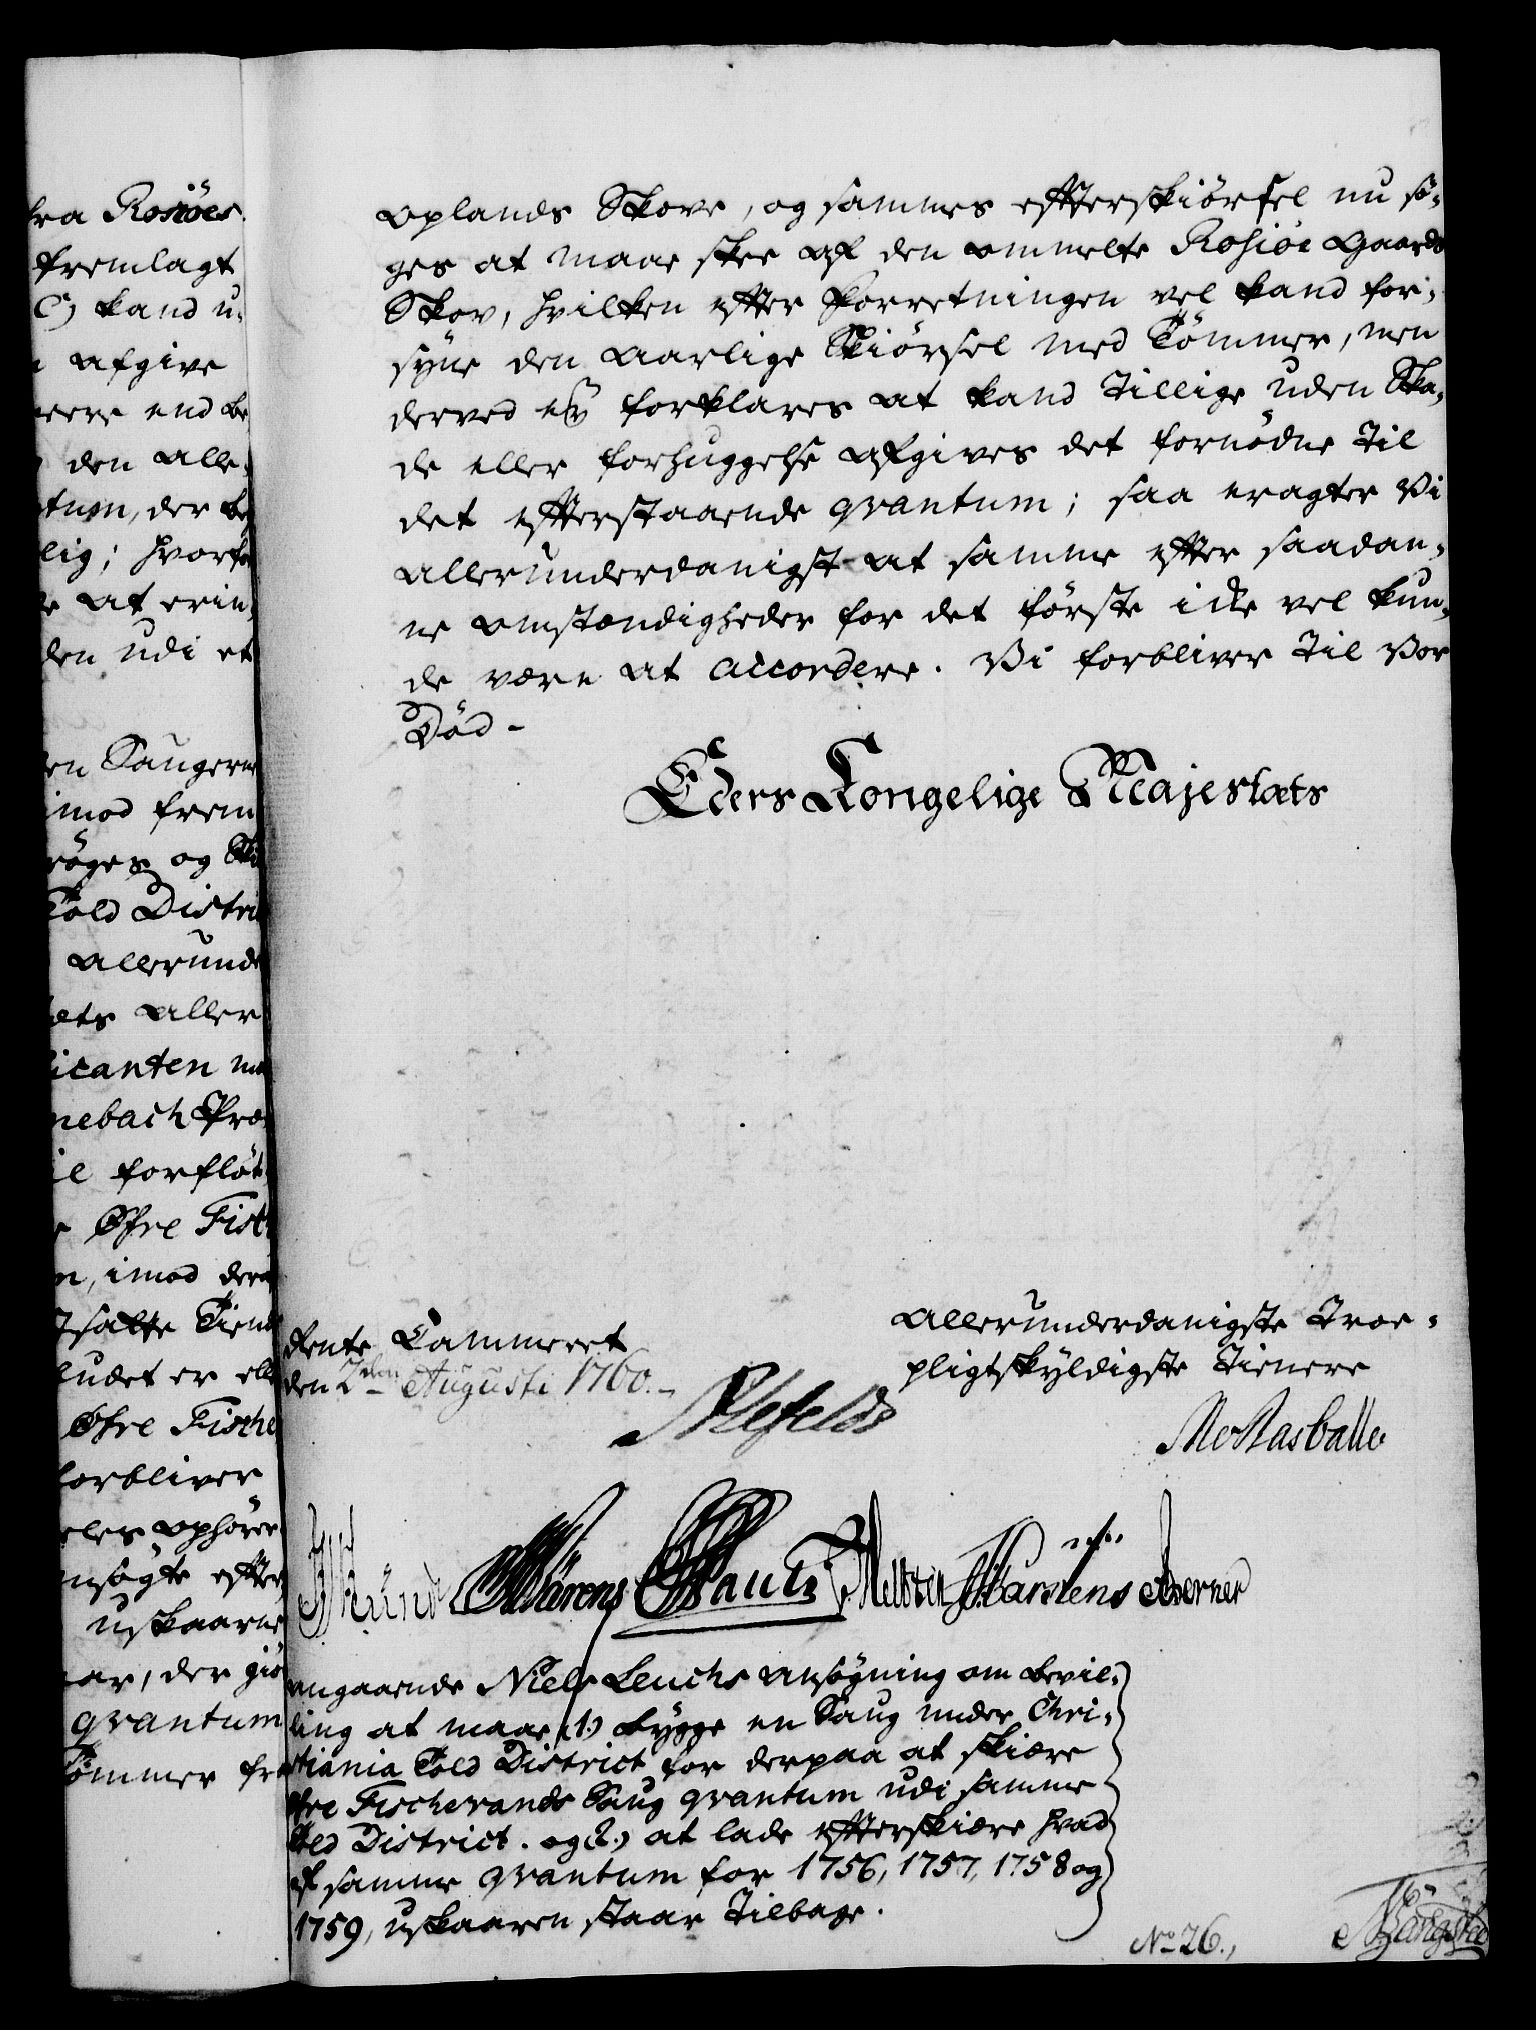 fra Rosiöes
fremlagt
C) kand u-
afgive
meere end be
den Alle-
tum, der be
lig; hvorfo
at erin-
den udi et
en Saugerne
imod frem
röges og Ski
Told Distri
allerunde
æts Aller
icanten
nebach Pro
il forflöt
Øfre Fisch
n, imod der
tsatte Tiend
ludet er ell
Øfre Fische
forbliver
eles ophöre
nsögte effter
uskaarne
ar, der giö
qvantum
Tömmer fra
Oplands Skove, og sammes effterskiörsel nu sö-
ges at maae skee af den ommelte Rosiöe Gaards
Skov, hvilken efter Forretningen vel kand for-
syne den aarlige Skiörsel med Tömmer, men
derved ey forklares at kand tillige uden Ska-
de eller forhuggelse afgives det fornödne til
det effterstaaende qvantum; saa eragter Vi
allerunderdanigst at samme efter saadan-
ne omstændigheder for det förste icke vel kun-
de være at accordere. Vi forbliver til Vor
Död -
Eders Kongelige Majestæts
Allerunderdanigste Troe-
pligtskyldigste Tienere
Rente Cammeret
den 2den Augusti 1760.-
Ahlefeldt
angaaende Niels Leuchs Ansögning om Bevil-
ling at maae (1.) bygge en Saug under Chri-
stiania Told District for derpaa at skiære
Øfre Fischevands Saug qvantum udi samme
Told District. og (2.) at lade effterskiære hvad
af samme qvantum for 1756, 1757, 1758 og
1759, uskaaren staar tilbage.
No 26.,